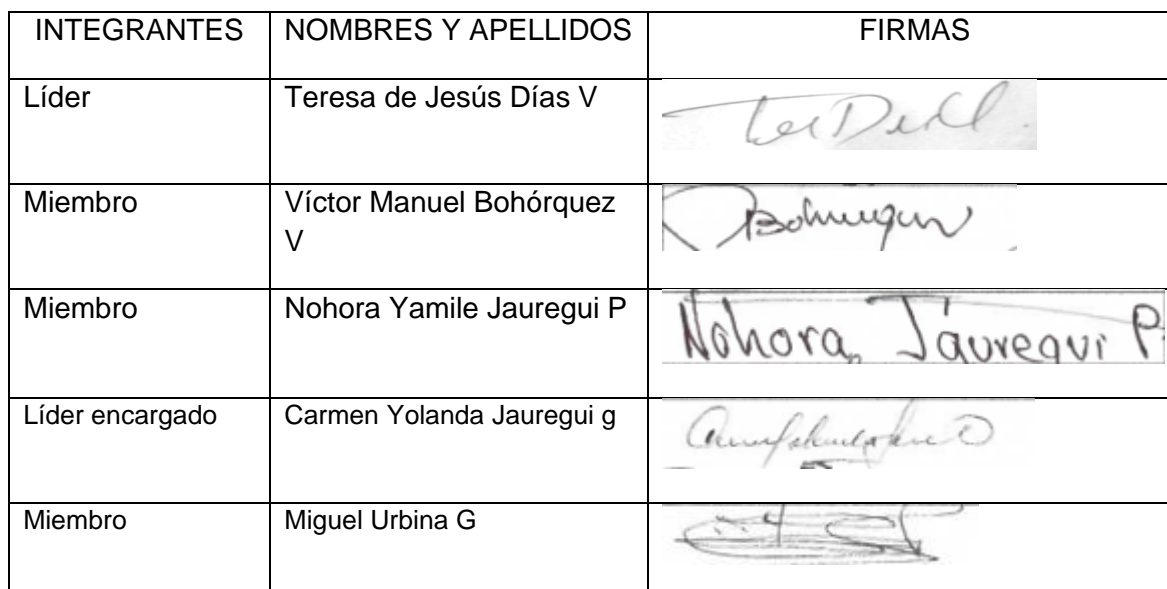 INTEGRANTES NOMBRES Y APELLIDOS FIRMAS
Líder Teresa de Jesús Días V
Miembro Víctor Manuel Bohórquez
V
Miembro Nohora Yamile Jauregui P Nohora Jauregui P.
Líder encargado Carmen Yolanda Jauregui g
Miembro Miguel Urbina G